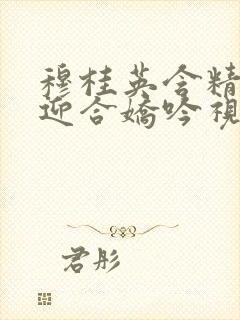 穆桂英含精
迎合嬌吟視
君彤